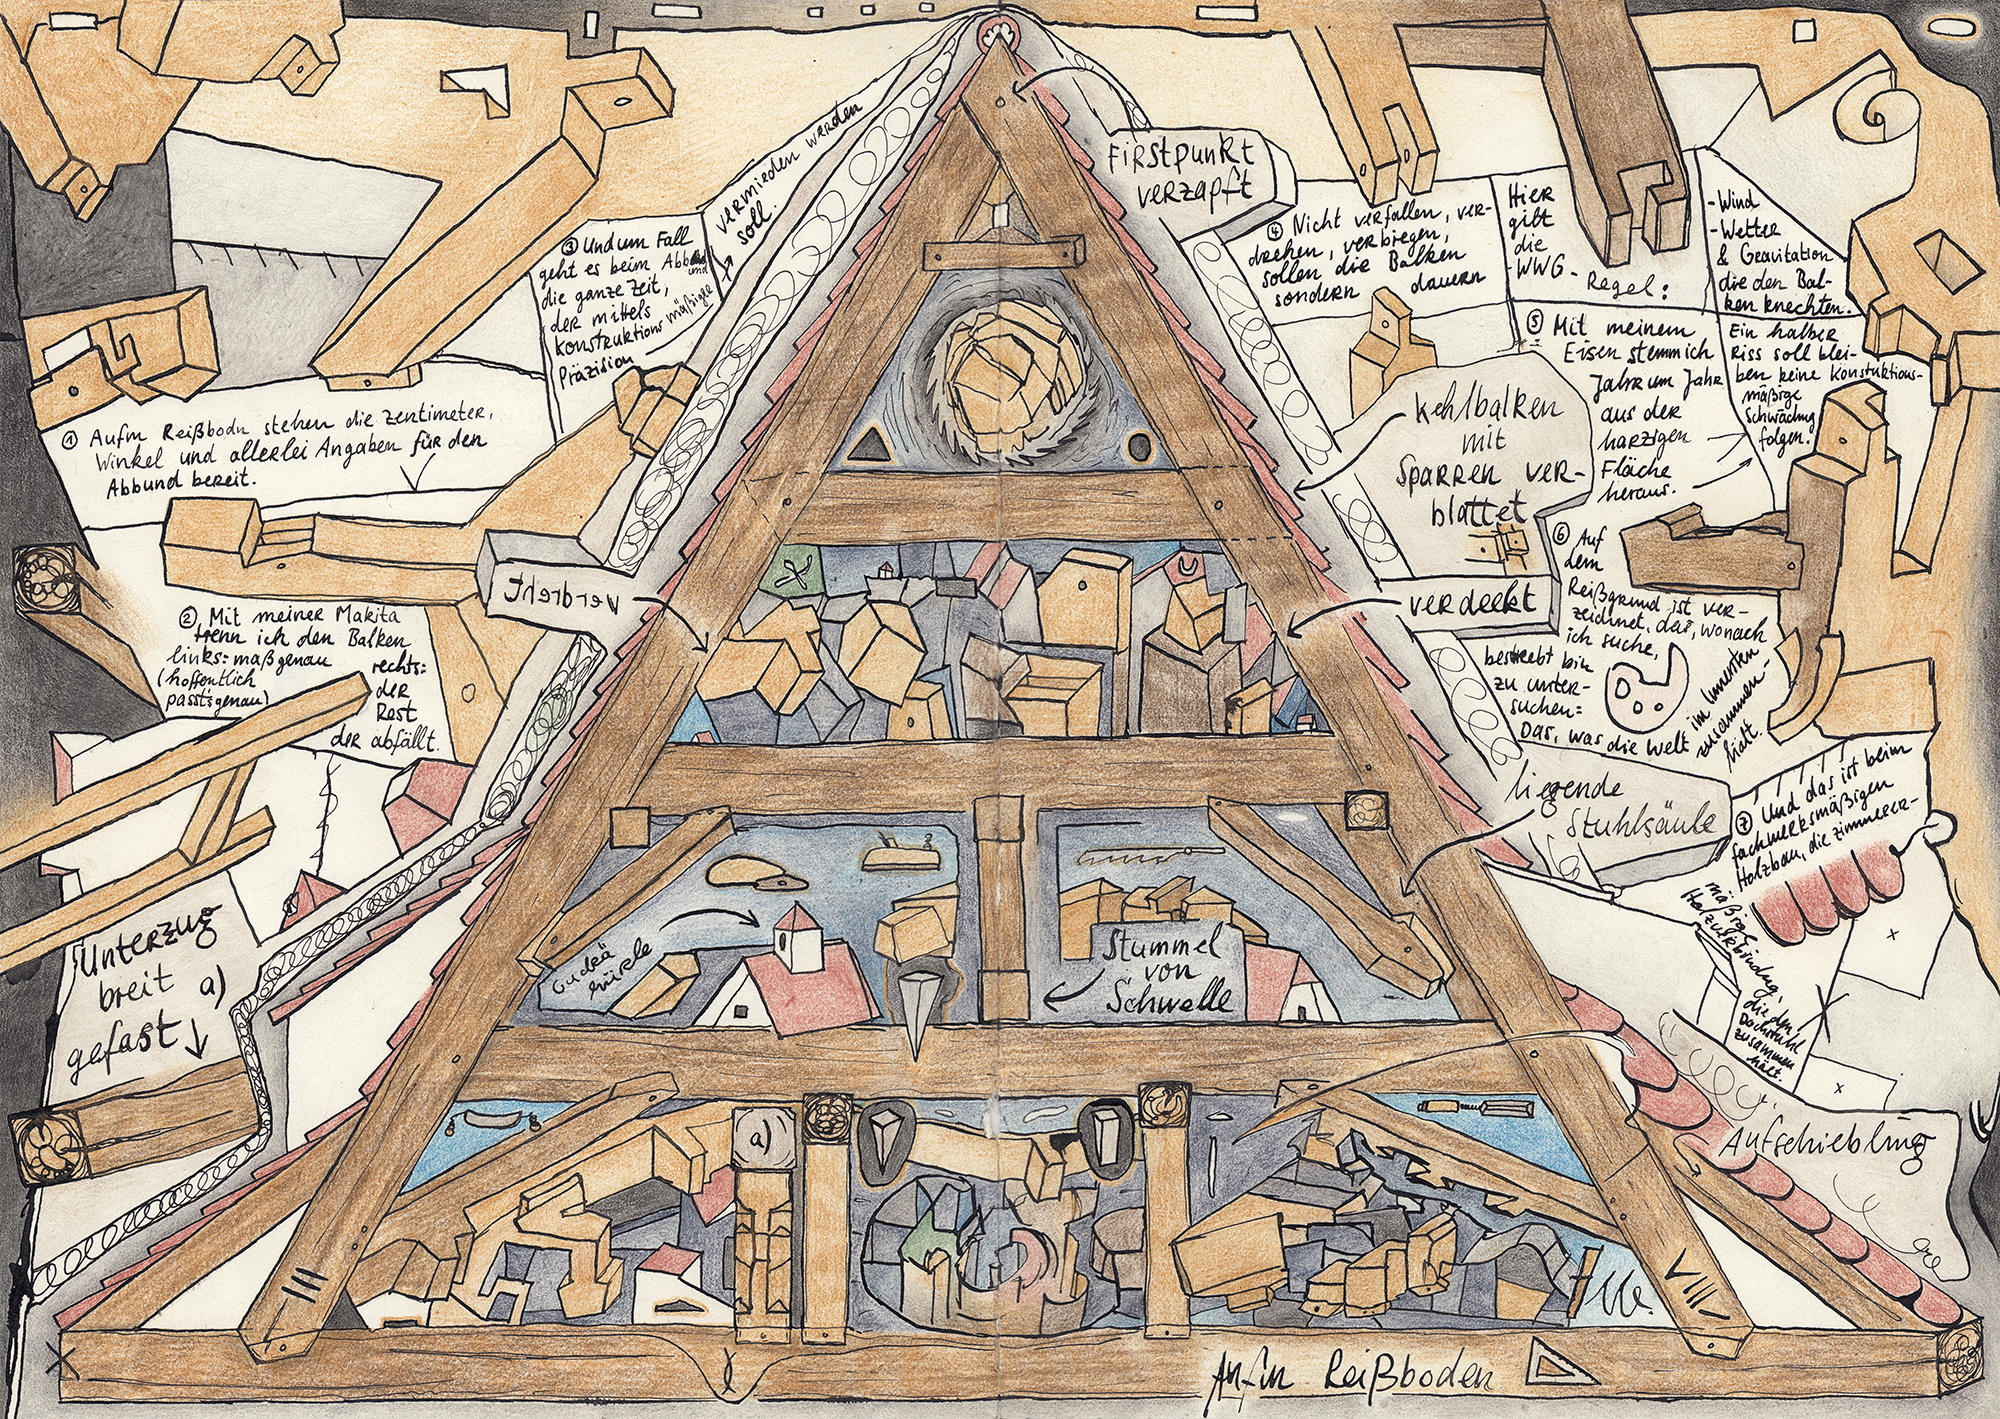 ① Aufm Reißbodn stehen die Zentimeter,
Winkel und allerlei Angaben für den
Abbund bereit.
② Mit meiner Makita
trenn ich den Balken
links: maßgenau
(hoffentlich
passtsgenau)
rechts:
der
Rest
der abfällt.
③ Und um Fall
geht es beim Abbund
die ganze Zeit,
der mittels
Konstruktionsmäßiger
Präzision
vermieden werden
soll.
④ Nicht verfallen, ver-
drehen, verbiegen,
sollen die Balken
sondern dauern
Hier
gilt
die
-WWG-
Regel:
- Wind
- Wetter
& Gravitation
die den Bal-
ken knechten.
⑤ Mit meinem
Eisen stemm ich
Jahr um Jahr
aus der
harzigen
Fläche
heraus.
Ein halber
Riss soll blei-
ben keine Konstuktions-
mäßige
Schwächung
folgen.
⑥ Auf
dem
Reißgrund ist ver-
zeichnet, das, wonach
ich suche,
bestrebt bin
zu unter-
suchen:
Das, was die Welt im Innersten
zusammen-
hält.
⑦ Und das ist beim
fachwerksmäßigen
Holzbau, die zimmerer-
mäßige
Holzverbindung,
die den
Dachstuhl
zusammen
hält.
Firstpunkt
verzapft
Kehlbalken
mit
Sparren ver-
blattet
verdreht
verdeckt
liegende
Stuhlsäule
Unterzug
breit a)
gefast
Stummel
von
Schwelle
a)
Aufschiebling
III
VIII
Aufm Reißboden